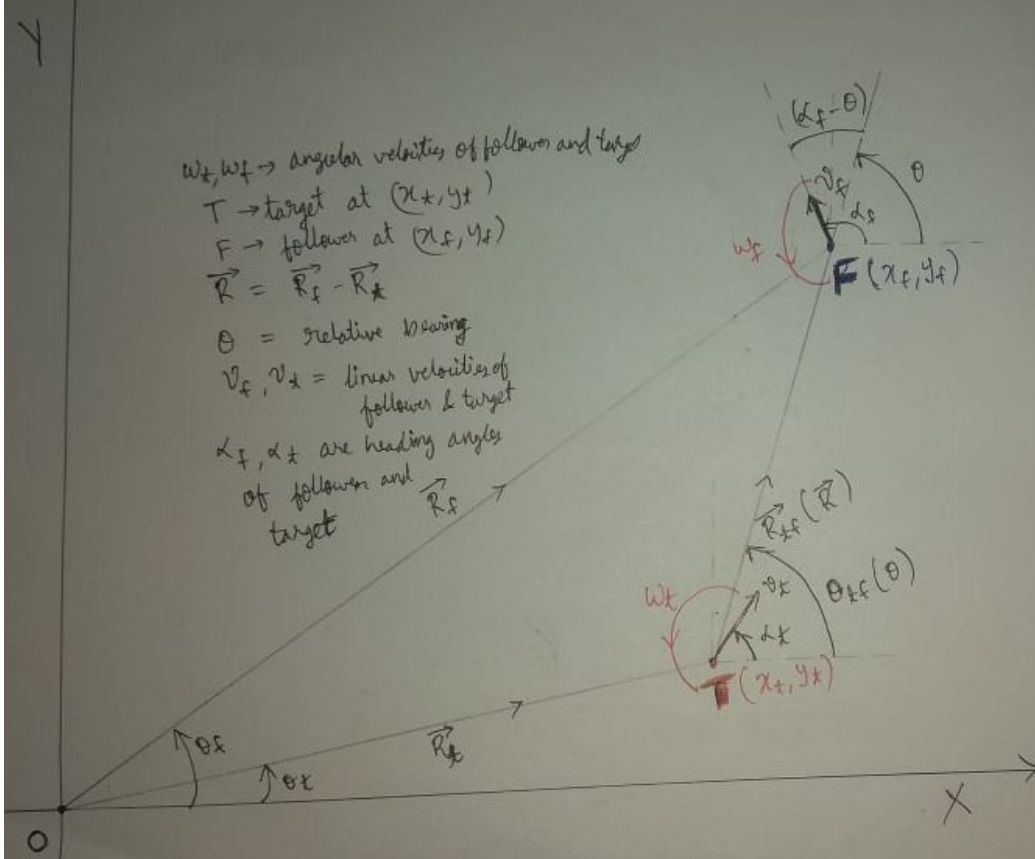 Y
ωt, ωf → angular velocities of follower and targe
T → target at (xt, yt)
F → follower at (xf, yf)
R⃗ = R⃗f - R⃗t
θ = relative bearing
vf, vt = linear velocities of
follower & target
αf, αt are heading angles
of follower and
target
R⃗f
(αf-θ)
θ
vf
αf
ωf
F (xf, yf)
R⃗tf (R⃗)
θtf (θ)
ωt
vt
αt
T (xt, yt)
R⃗t
θf
θt
X
O